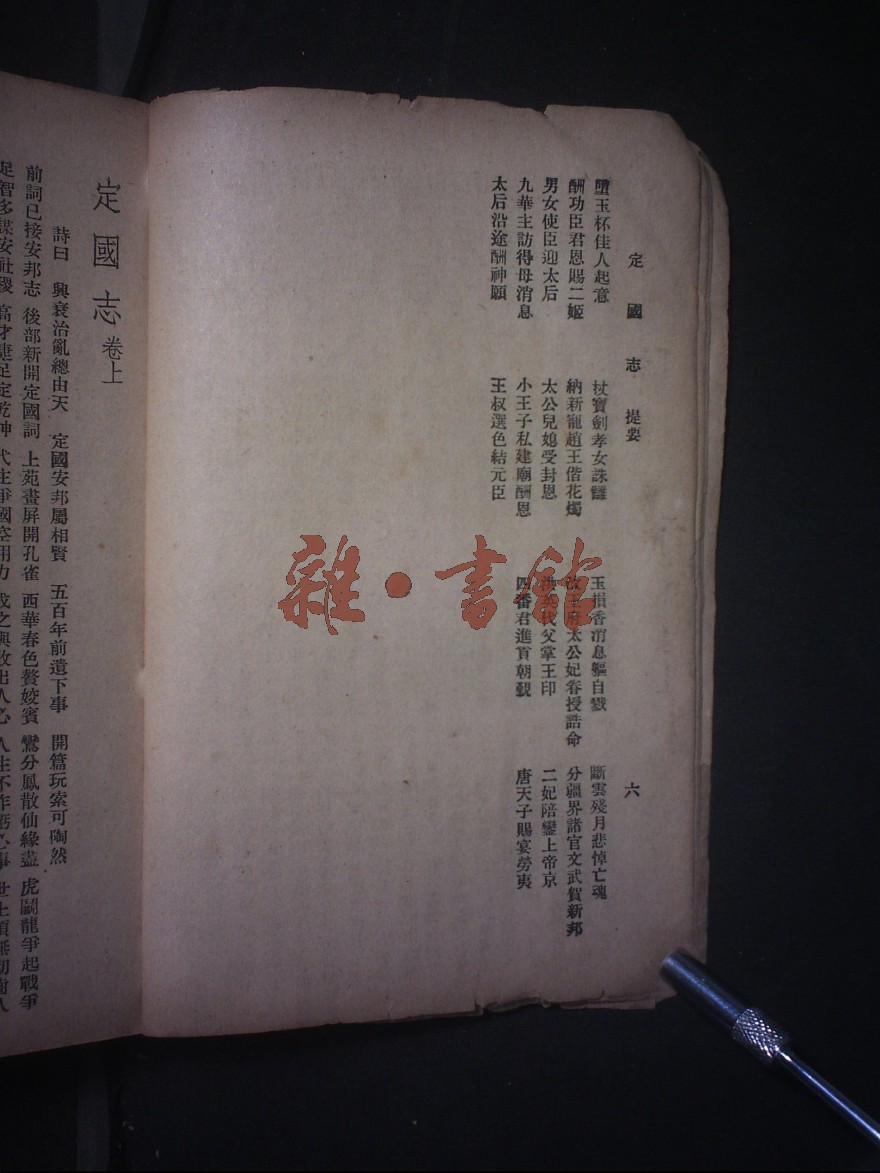 定國志 提要 六
墮玉杯佳人起意 杖寶劍孝女誅讎 玉損香消息軀自戮 斷雲殘月悲悼亡魂
酬功臣君恩賜二姬 納新寵趙王偕花燭 改王府太公妃眷授誥命 分疆界諸官文武賀新邦
男女使臣迎太后 太公兒媳受封恩 代父掌王印 二妃陪鑾上帝京
九華主訪得母消息 小王子私建廟酬恩 四番君進貢朝覲 唐天子賜宴勞夷
太后沿途酬神願 王叔選色結元臣
雜·書館
定國志 卷上
詩曰 興衰治亂總由天 定國安邦屬相賢 五百年前遺下事 開篇玩索可陶然
前詞已接安邦志 後部新開定國詞 上苑畫屏開孔雀 西華春色贅姣賓 鸞分鳳散仙緣盡 虎鬬龍爭起戰爭
足智多謀安社稷 高才捷足定乾坤